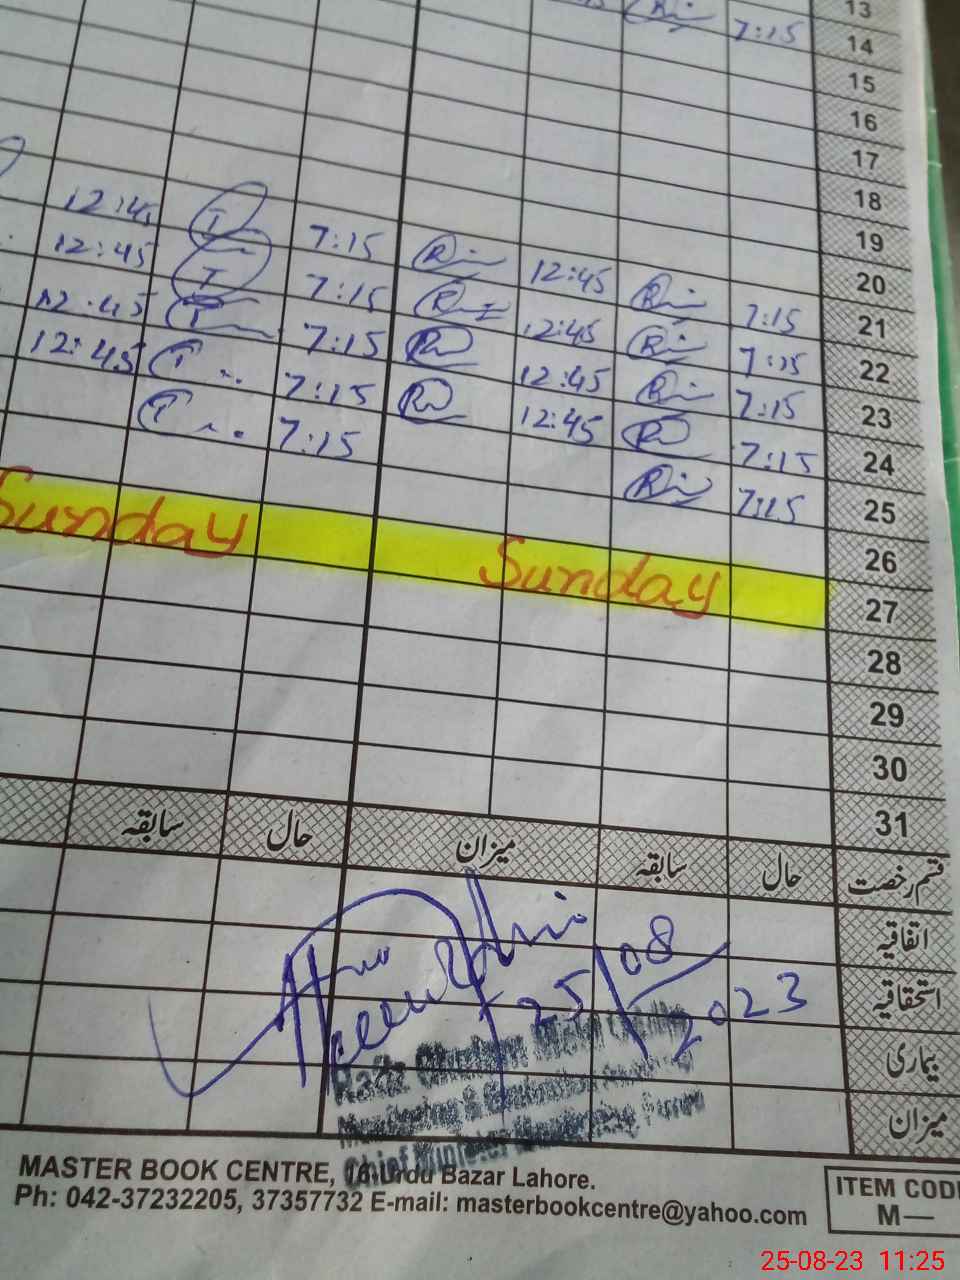 13
7:15 14
15
16
17
18
19
12:45 T 7:15 12:45 7:15 20
12:45 T 7:15 12:45 7:15 21
12:45 T 7:15 12:45 7:15 22
12:45 T 7:15 12:45 7:15 23
T 7:15 7:15 24
25
26
Sunday Sunday 27
28
29
30
31
سابقہ حال میزان سابقہ حال قسم رخصت
اتفاقیہ
استحقاقیہ
بیماری
میزان
25/08
2023
MASTER BOOK CENTRE, 16-Urdu Bazar Lahore.
Ph: 042-37232205, 37357732 E-mail: masterbookcentre@yahoo.com
ITEM CODE
M—
25-08-23 11:25